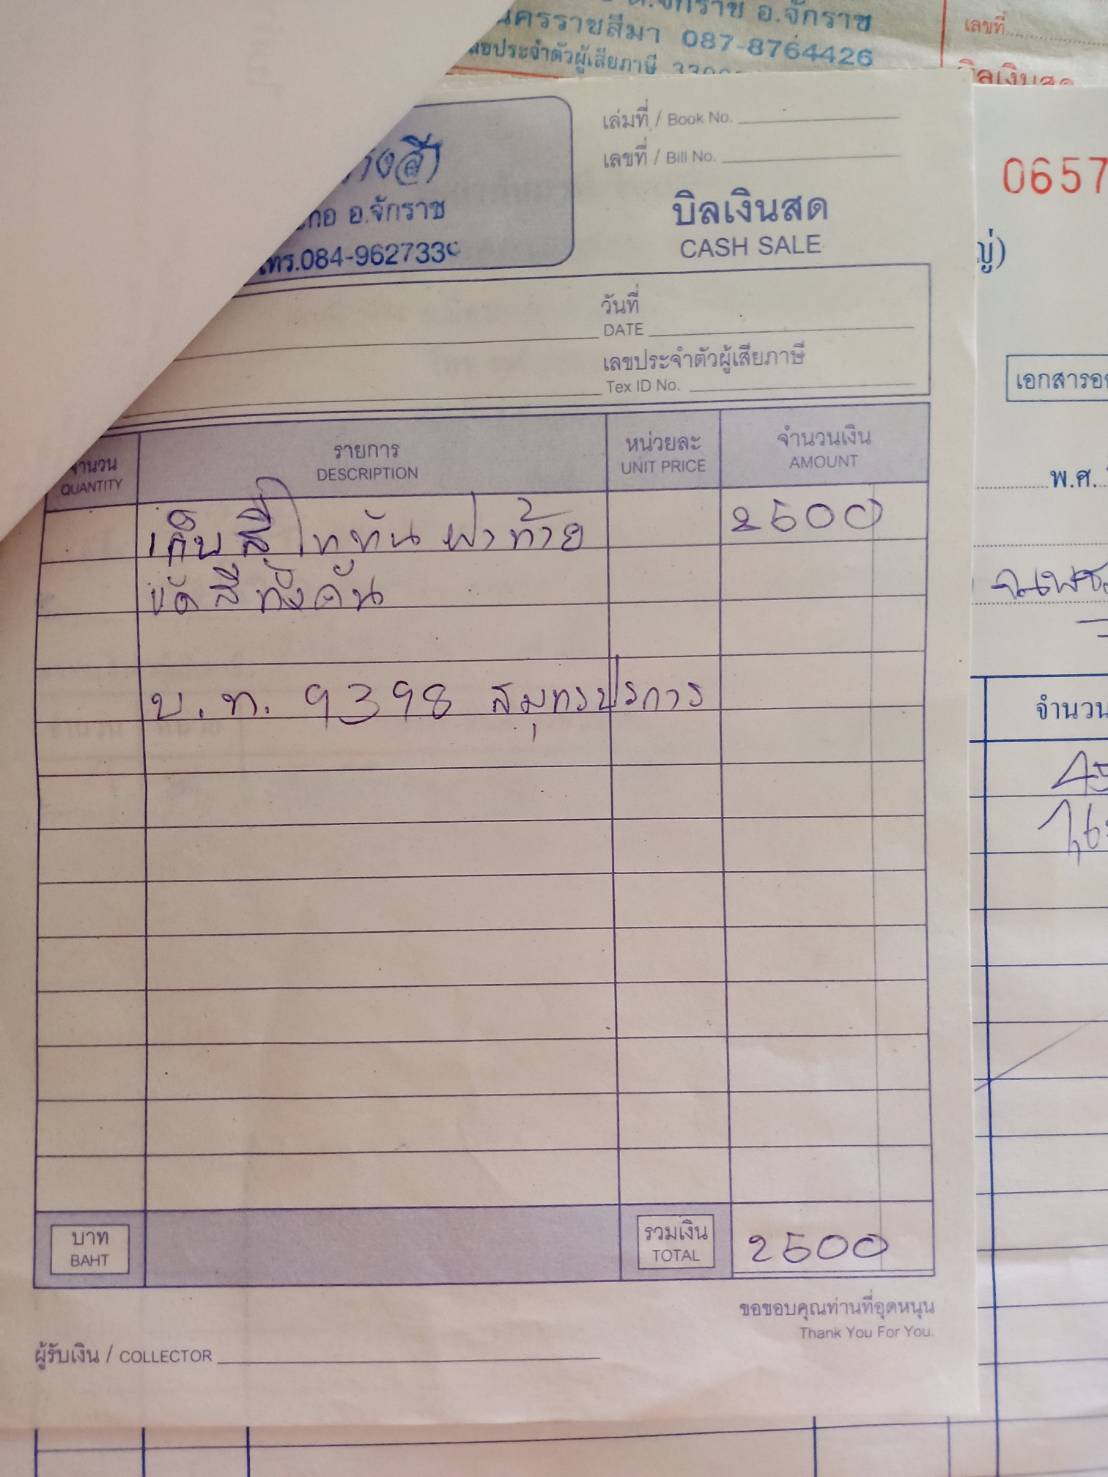 อ.จักราช
นครราชสีมา 087-8764426
ประจำตัวผู้เสียภาษี
เลขที่
บิลเงินสด
อ.จักราช
โทร.084-962733
เล่มที่ / Book No.
เลขที่ / Bill No.
บิลเงินสด
CASH SALE
วันที่
DATE
เลขประจำตัวผู้เสียภาษี
Tex ID No.
จำนวน
QUANTITY
รายการ
DESCRIPTION
หน่วยละ
UNIT PRICE
จำนวนเงิน
AMOUNT
เก็บสี ฝาท้าย 2500
ขัดสีทั้งคัน
บ.ท. 9398 สมุทรปราการ
บาท
BAHT
รวมเงิน
TOTAL
2500
ขอขอบคุณท่านที่อุดหนุน
Thank You For You.
ผู้รับเงิน / COLLECTOR
0657
พ.ศ.
จำนวน